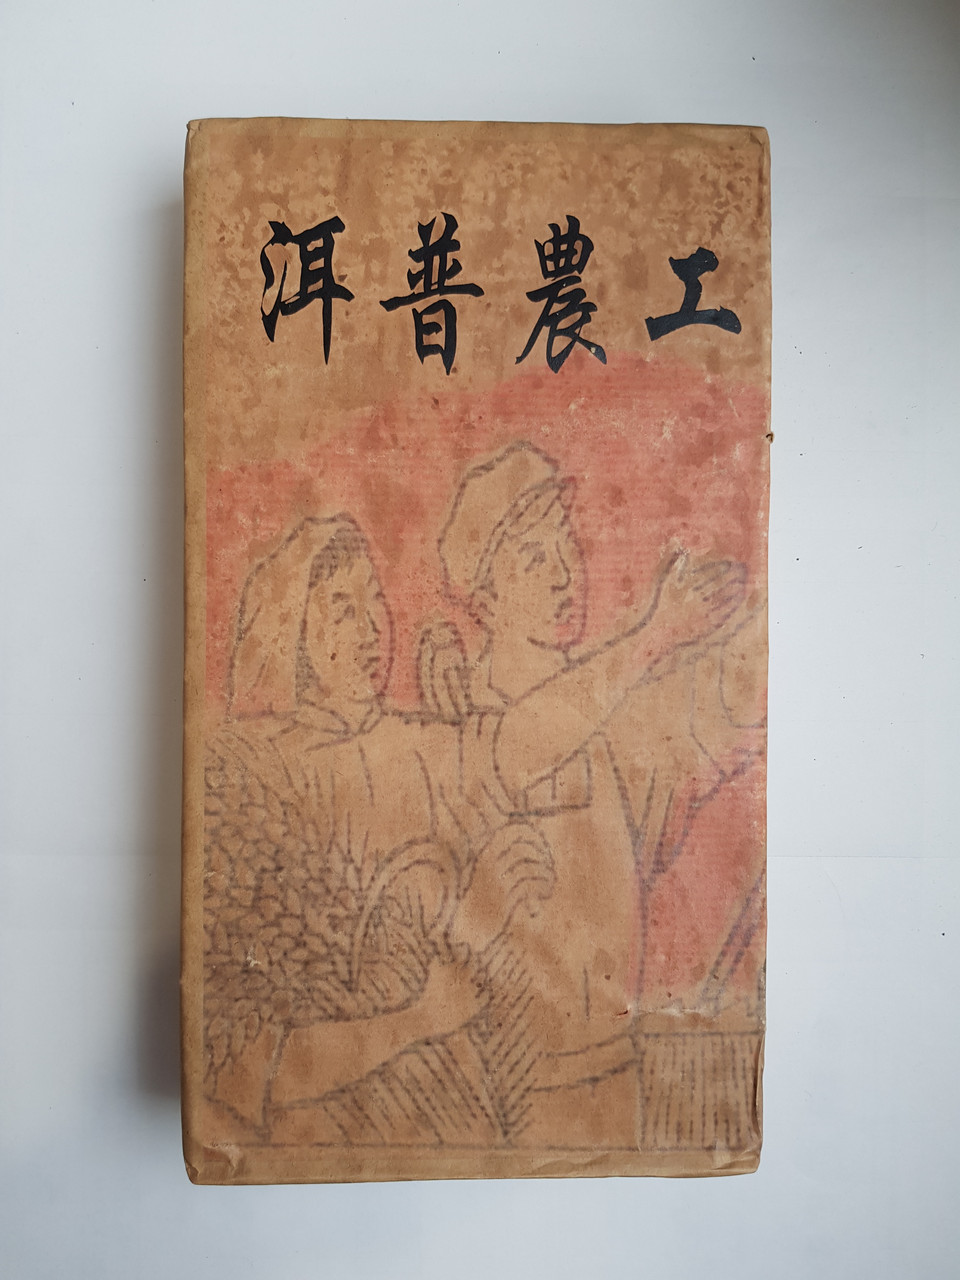 工農普洱